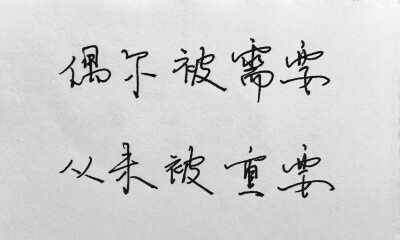 偶尔被需要
从未被重要